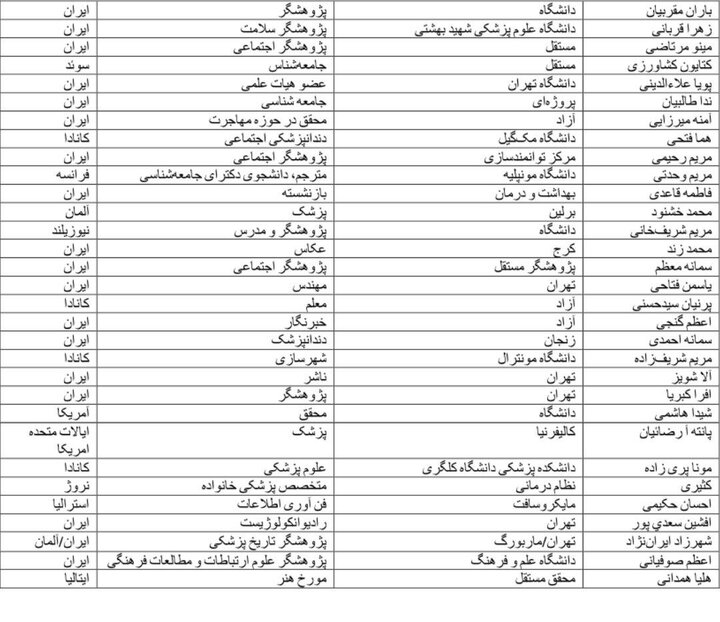 باران مقربیان دانشگاه پژوهشگر ایران
زهرا قربانی دانشگاه علوم پزشکی شهید بهشتی پژوهشگر سلامت ایران
مینو مرتاضی مستقل پژوهشگر اجتماعی ایران
کتایون کشاورزی مستقل جامعه‌شناس سوئد
پویا علاءالدینی دانشگاه تهران عضو هیات علمی ایران
ندا طالبیان پروژه‌ای جامعه شناسی ایران
آمنه میرزایی آزاد محقق در حوزه مهاجرت ایران
هما فتحی دانشگاه مک‌گیل دندانپزشکی اجتماعی کانادا
مریم رحیمی مرکز توانمندسازی پژوهشگر اجتماعی ایران
مریم وحدتی دانشگاه مونپلیه مترجم، دانشجوی دکترای جامعه‌شناسی فرانسه
فاطمه قاعدی بهداشت و درمان بازنشسته ایران
محمد خشنود برلین پزشک آلمان
مریم شریف‌خانی دانشگاه پژوهشگر و مدرس نیوزیلند
محمد زند کرج عکاس ایران
سمانه معظم پژوهشگر مستقل پژوهشگر اجتماعی ایران
یاسمن فتاحی تهران مهندس ایران
پرنیان سیدحسنی آزاد معلم کانادا
اعظم گنجی آزاد خبرنگار ایران
سمانه احمدی زنجان دندانپزشک ایران
مریم شریف‌زاده دانشگاه مونترال شهرسازی کانادا
آلا شویز تهران ناشر ایران
افرا کبریا تهران پژوهشگر ایران
شیدا هاشمی دانشگاه محقق آمریکا
پانته آ رضائیان کالیفرنیا پزشک ایالات متحده
امریکا
مونا پری زاده دانشکده پزشکی دانشگاه کلگری علوم پزشکی کانادا
کثیری نظام درمانی متخصص پزشکی خانواده نروژ
احسان حکیمی مایکروسافت فن آوری اطلاعات استرالیا
افشین سعدي پور تهران رادیوانکولوژیست ایران
شهرزاد ایران‌نژاد تهران/ماربورگ پژوهشگر تاریخ پزشکی ایران/آلمان
اعظم صوفیانی دانشگاه علم و فرهنگ پژوهشگر علوم ارتباطات و مطالعات فرهنگی ایران
هلیا همدانی محقق مستقل مورخ هنر ایتالیا